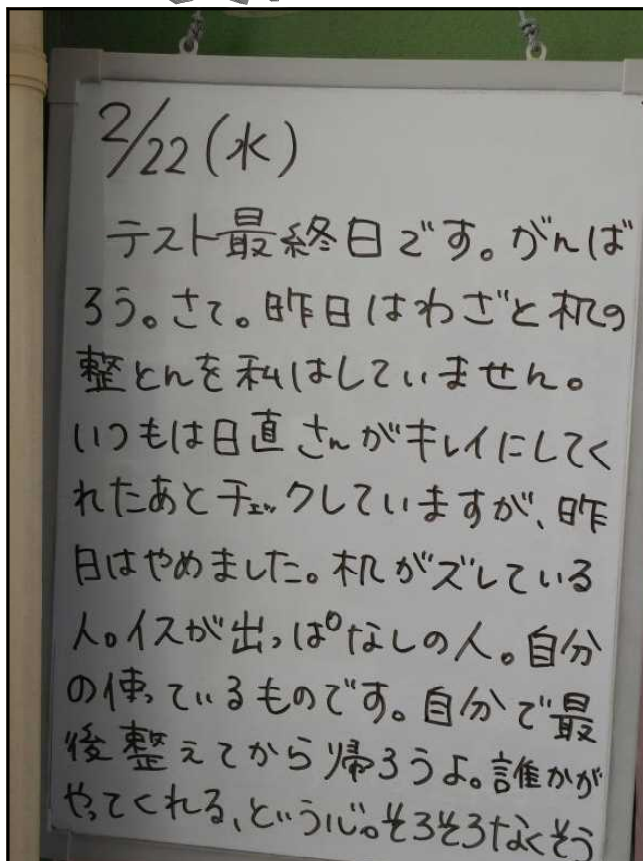 2/22(水)
テスト最終日です。がんば
ろう。さて。昨日はわざと机の
整とんを私はしていません。
いつもは日直さんがキレイにしてく
れたあとチェックしていますが、昨
日はやめました。机がズレている
人。イスが出っぱなしの人。自分
の使っているものです。自分で最
後整えてから帰ろうよ。誰かが
やってくれる、という心。そろそろなくそう